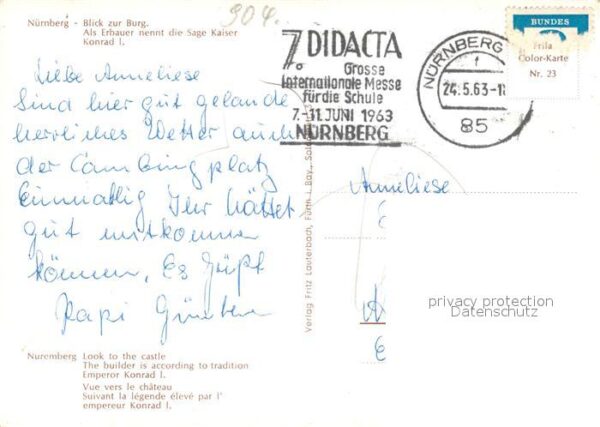 904.
Nürnberg - Blick zur Burg.
Als Erbauer nennt die Sage Kaiser
Konrad I.
7. DIDACTA
Grosse
Internationale Messe
für die Schule
7.-11. JUNI 1963
NÜRNBERG
NÜRNBERG
f
24.5.63-1
85
BUNDES
Frila
Color-Karte
Nr. 23
Liebe Anneliese
Sind hier gut gelandet
herrliches Wetter auch
der Cambingplatz
Einmallig Ihr hättet
gut mitkommen
können, Es grüßt
Papi Günter
Anneliese
Verlag Fritz Lauterbach, Fürth i. Bay.,
privacy protection
Datenschutz
Nuremberg Look to the castle
The builder is according to tradition
Emperor Konrad I.
Vue vers le château
Suivant la légende élevé par l'
empereur Konrad I.